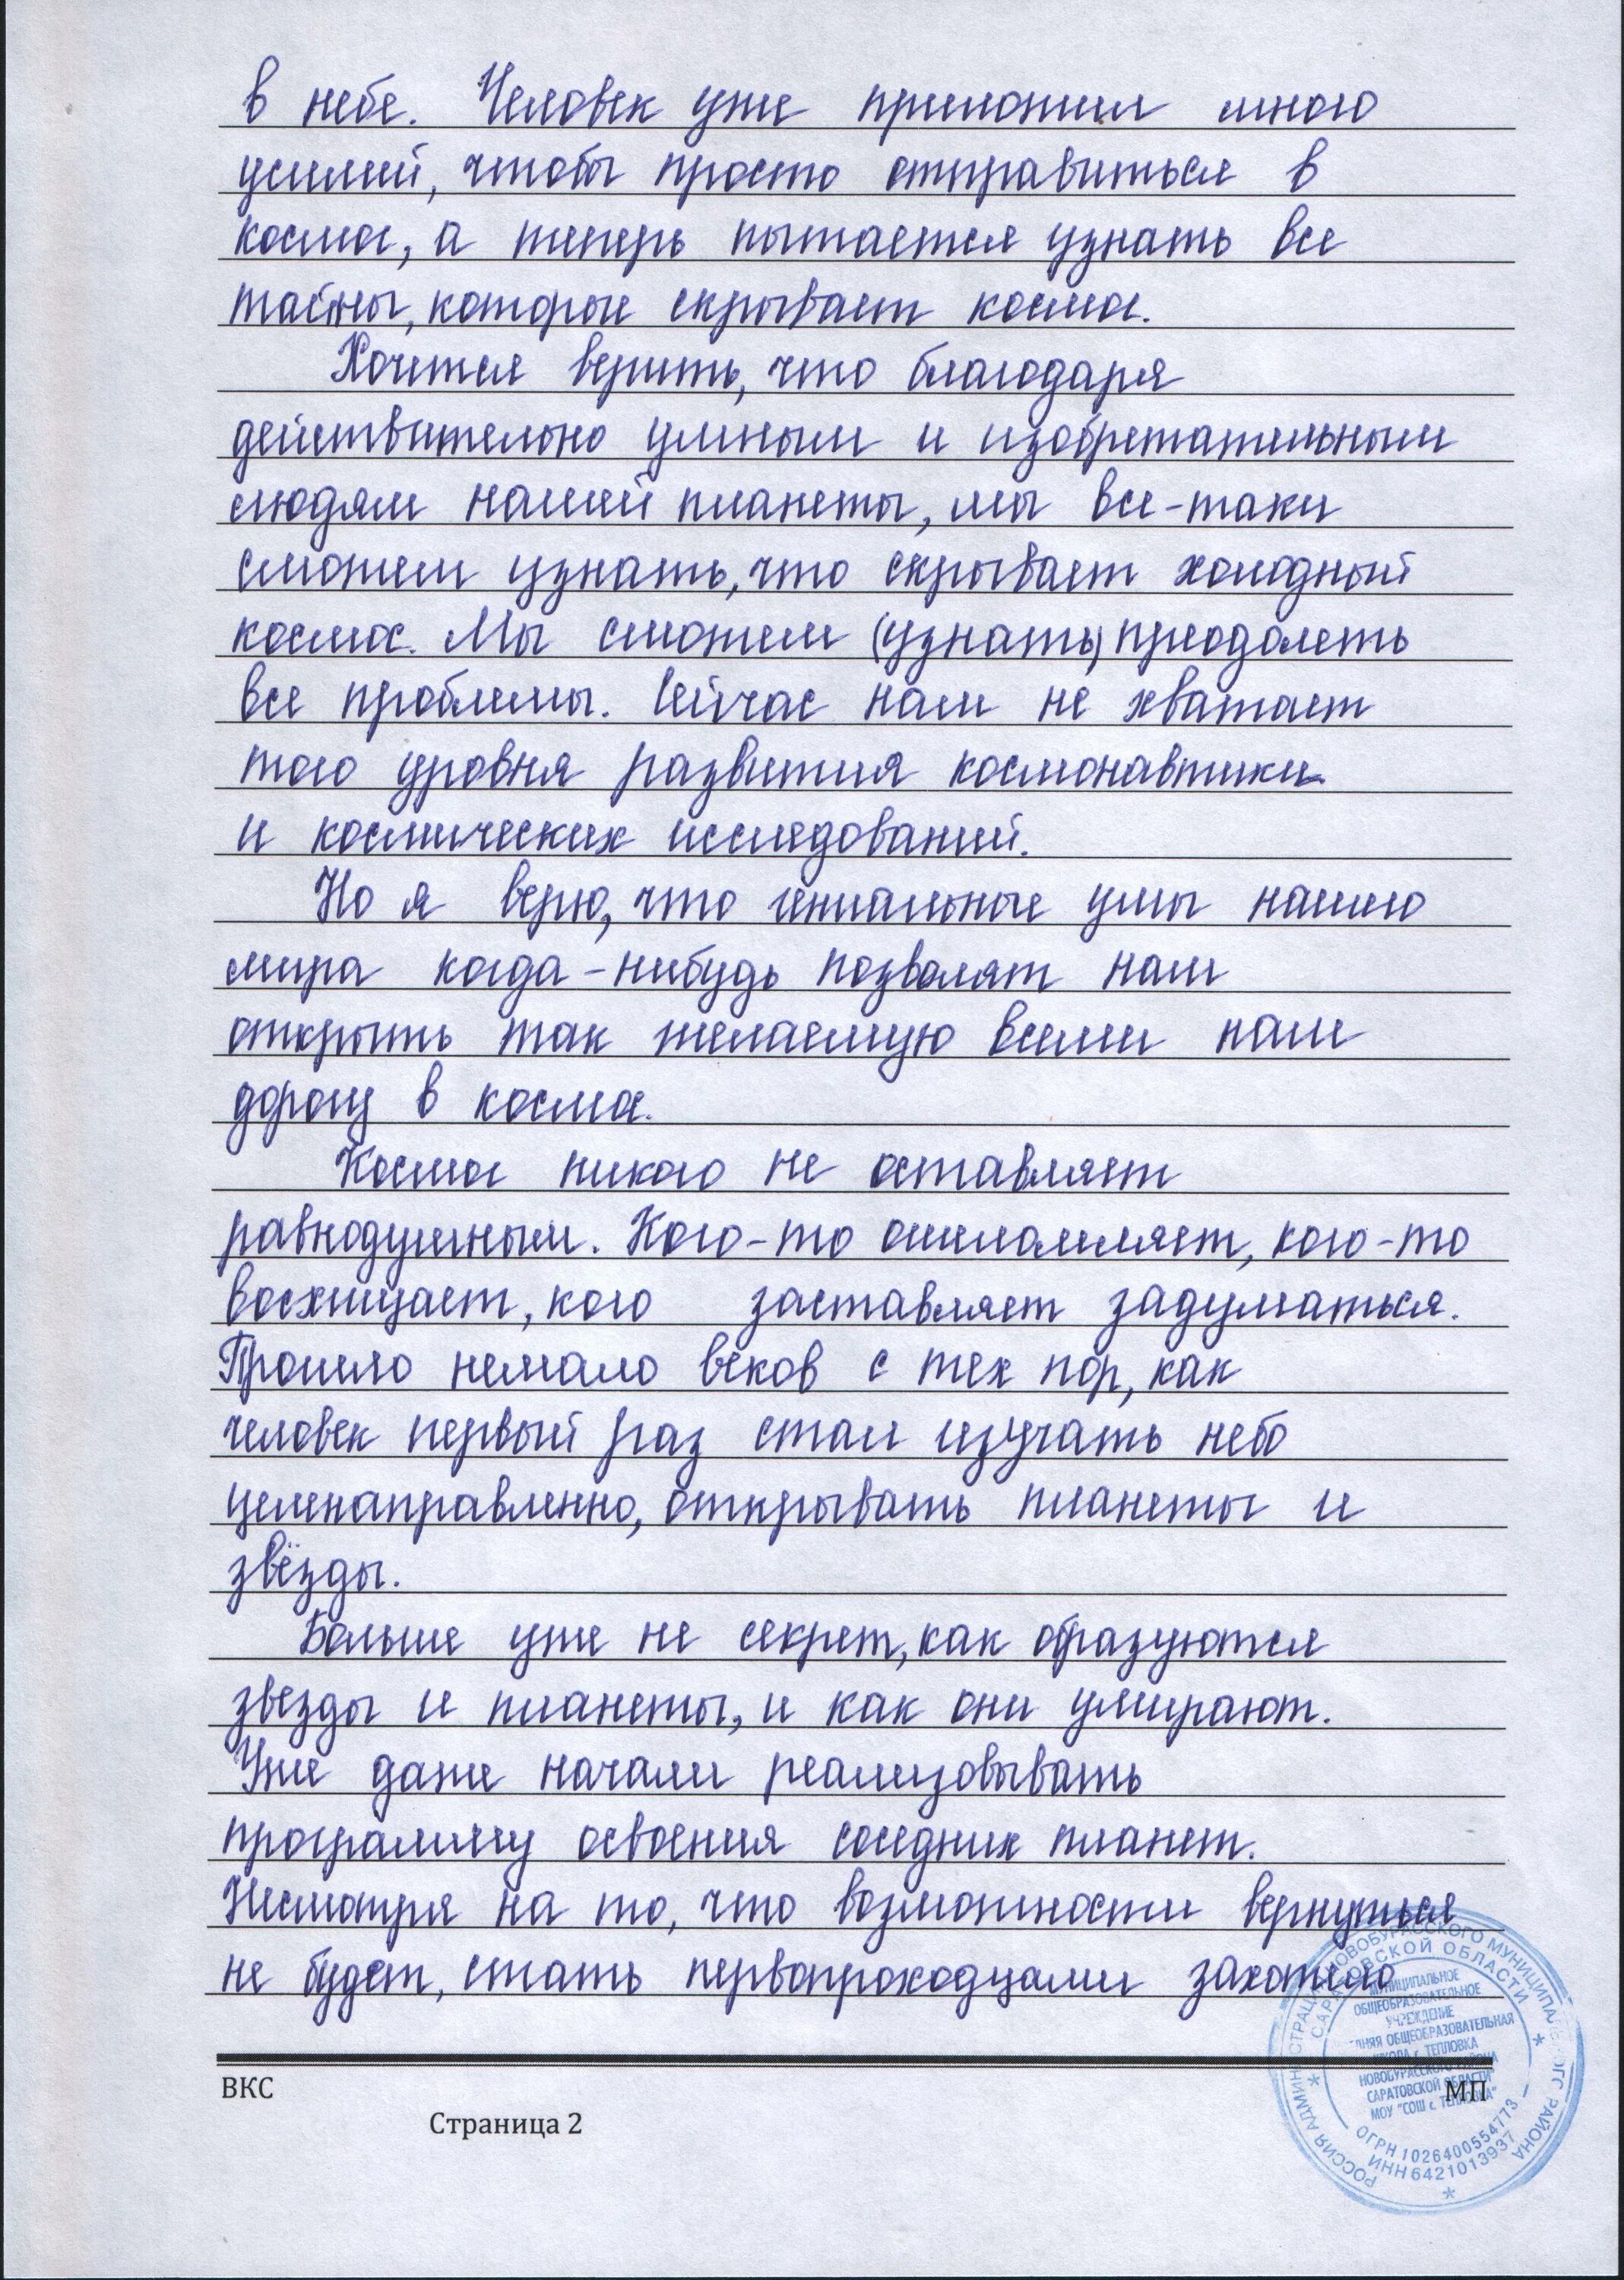 в небе. Человек уже приложил много
усилий, чтобы просто отправиться в
космос, а теперь пытается узнать все
тайны, которые скрывает космос.
Хочется верить, что благодаря
действительно умным и изобретательным
людям нашей планеты, мы все-таки
сможем узнать, что скрывает холодный
космос. Мы сможем (узнать) преодолеть
все проблемы. Сейчас нам не хватает
того уровня развития космонавтики
и космических исследований.
Но я верю, что гениальные умы нашего
мира когда-нибудь позволят нам
открыть так желаемую всеми нами
дорогу в космос.
Космос никого не оставляет
равнодушным. Кого-то ошеломляет, кого-то
восхищает, кого заставляет задуматься.
Прошло немало веков с тех пор, как
человек первый раз стал изучать небо
целенаправленно, открывать планеты и
звёзды.
Больше уже не секрет, как образуются
звезды и планеты, и как они умирают.
Уже даже начали реализовывать
программу освоения соседних планет.
Несмотря на то, что возможности вернуться
не будет, стать первопроходцами захотело
ВКС
МП
Страница 2
РОССИЯ АДМИНИСТРАЦИЯ НОВОБУРАССКОГО МУНИЦИПАЛЬНОГО РАЙОНА
САРАТОВСКОЙ ОБЛАСТИ
МУНИЦИПАЛЬНОЕ
ОБЩЕОБРАЗОВАТЕЛЬНОЕ
УЧРЕЖДЕНИЕ
ДНЯЯ ОБЩЕОБРАЗОВАТЕЛЬНАЯ
ШКОЛА с. ТЕПЛОВКА
НОВОБУРАССКОГО РАЙОНА
САРАТОВСКОЙ ОБЛАСТИ
МОУ "СОШ с. ТЕПЛОВКА"
ОГРН 1026400554773
ИНН 6421013937